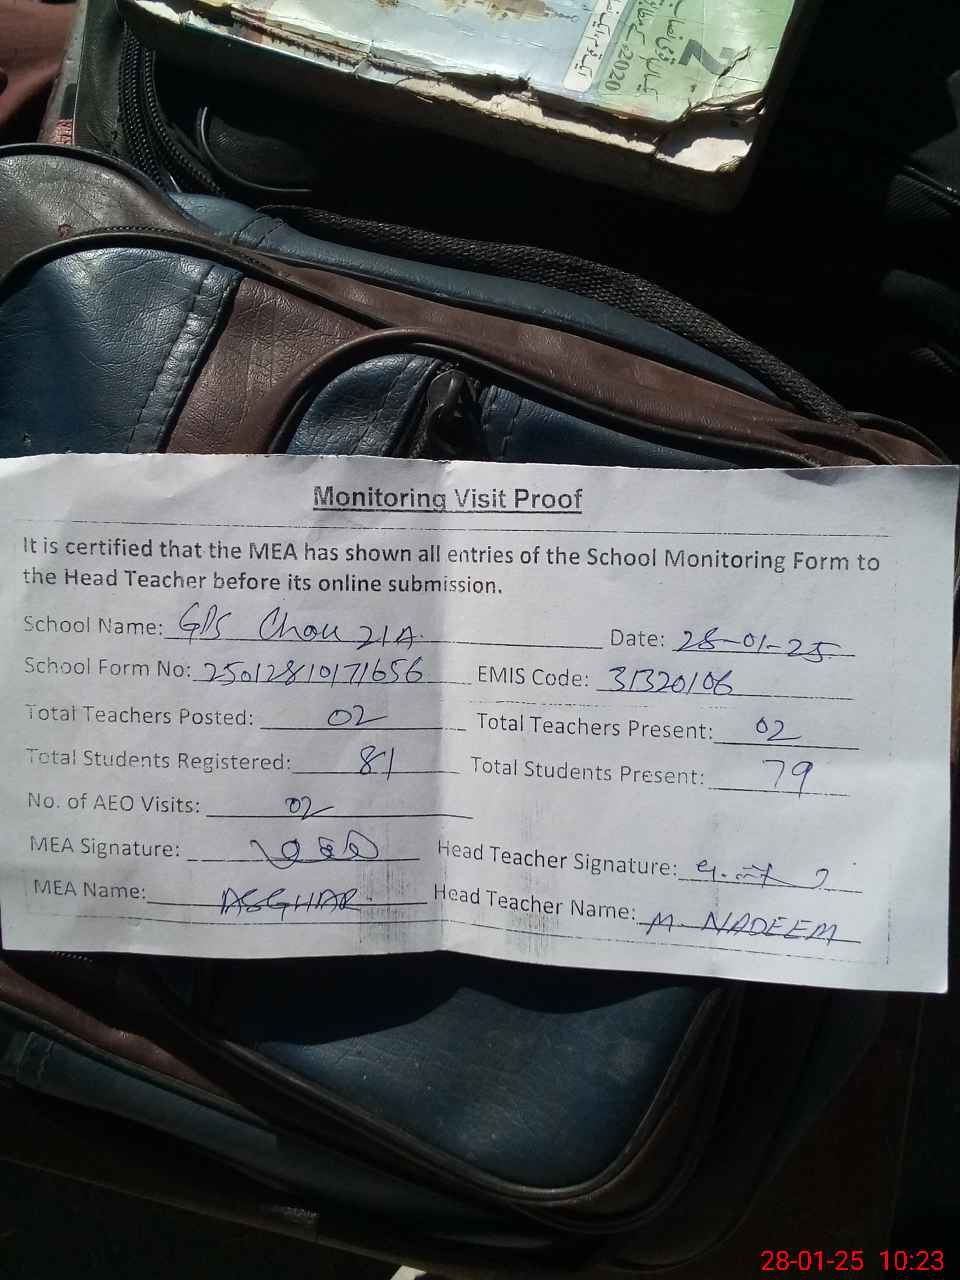 2
2020
Monitoring Visit Proof
It is certified that the MEA has shown all entries of the School Monitoring Form to
the Head Teacher before its online submission.
School Name: GPS Chak 21A. Date: 28-01-25
School Form No: 25012810171656 EMIS Code: 31320106
Total Teachers Posted: 02 Total Teachers Present: 02
Total Students Registered: 81 Total Students Present: 79
No. of AEO Visits: 02
MEA Signature: Head Teacher Signature:
MEA Name: ASGHAR. Head Teacher Name: M. NADEEM
28-01-25 10:23